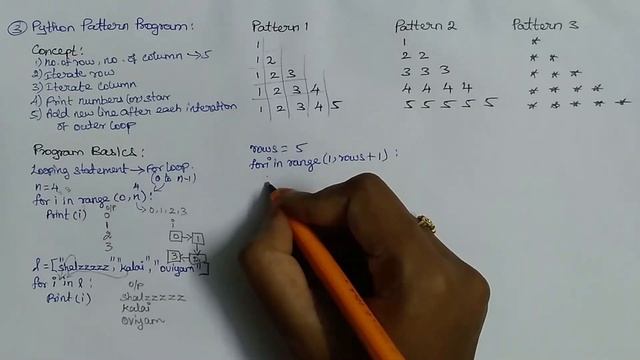 ③ Python Pattern Program:
Concept:
1) no. of row, no. of column → 5
2) Iterate row
3) Iterate column
4) Print numbers (or) star
5) Add new line after each interation
of outer loop
Pattern 1
1
1 2
1 2 3
1 2 3 4
1 2 3 4 5
Pattern 2
1
2 2
3 3 3
4 4 4 4
5 5 5 5 5
Pattern 3
*
* *
* * *
* * * *
* * * * *
Program Basics:
Looping statement → For loop.
(0 to n-1)
n=4
4
for i in range (0, n):
Print (i)
→ 0, 1, 2, 3
o/p
0
1
2
3
i
0 → 1
3
l = ["shalzzzzz", "kalai", "oviyam"]
for i in l:
Print (i)
o/p
shalzzzzz
kalai
oviyam
rows = 5
for i in range (1, rows + 1) :